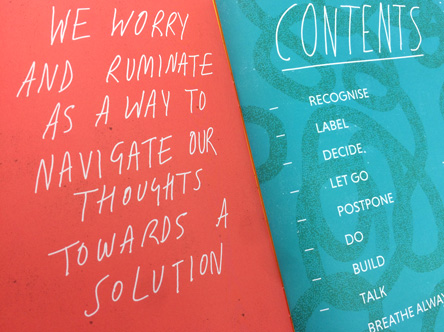 WE WORRY
AND RUMINATE
AS A WAY TO
NAVIGATE OUR
THOUGHTS
TOWARDS A
SOLUTION
CONTENTS
RECOGNISE
LABEL
DECIDE.
LET GO
POSTPONE
DO
BUILD
TALK
BREATHE ALWAY